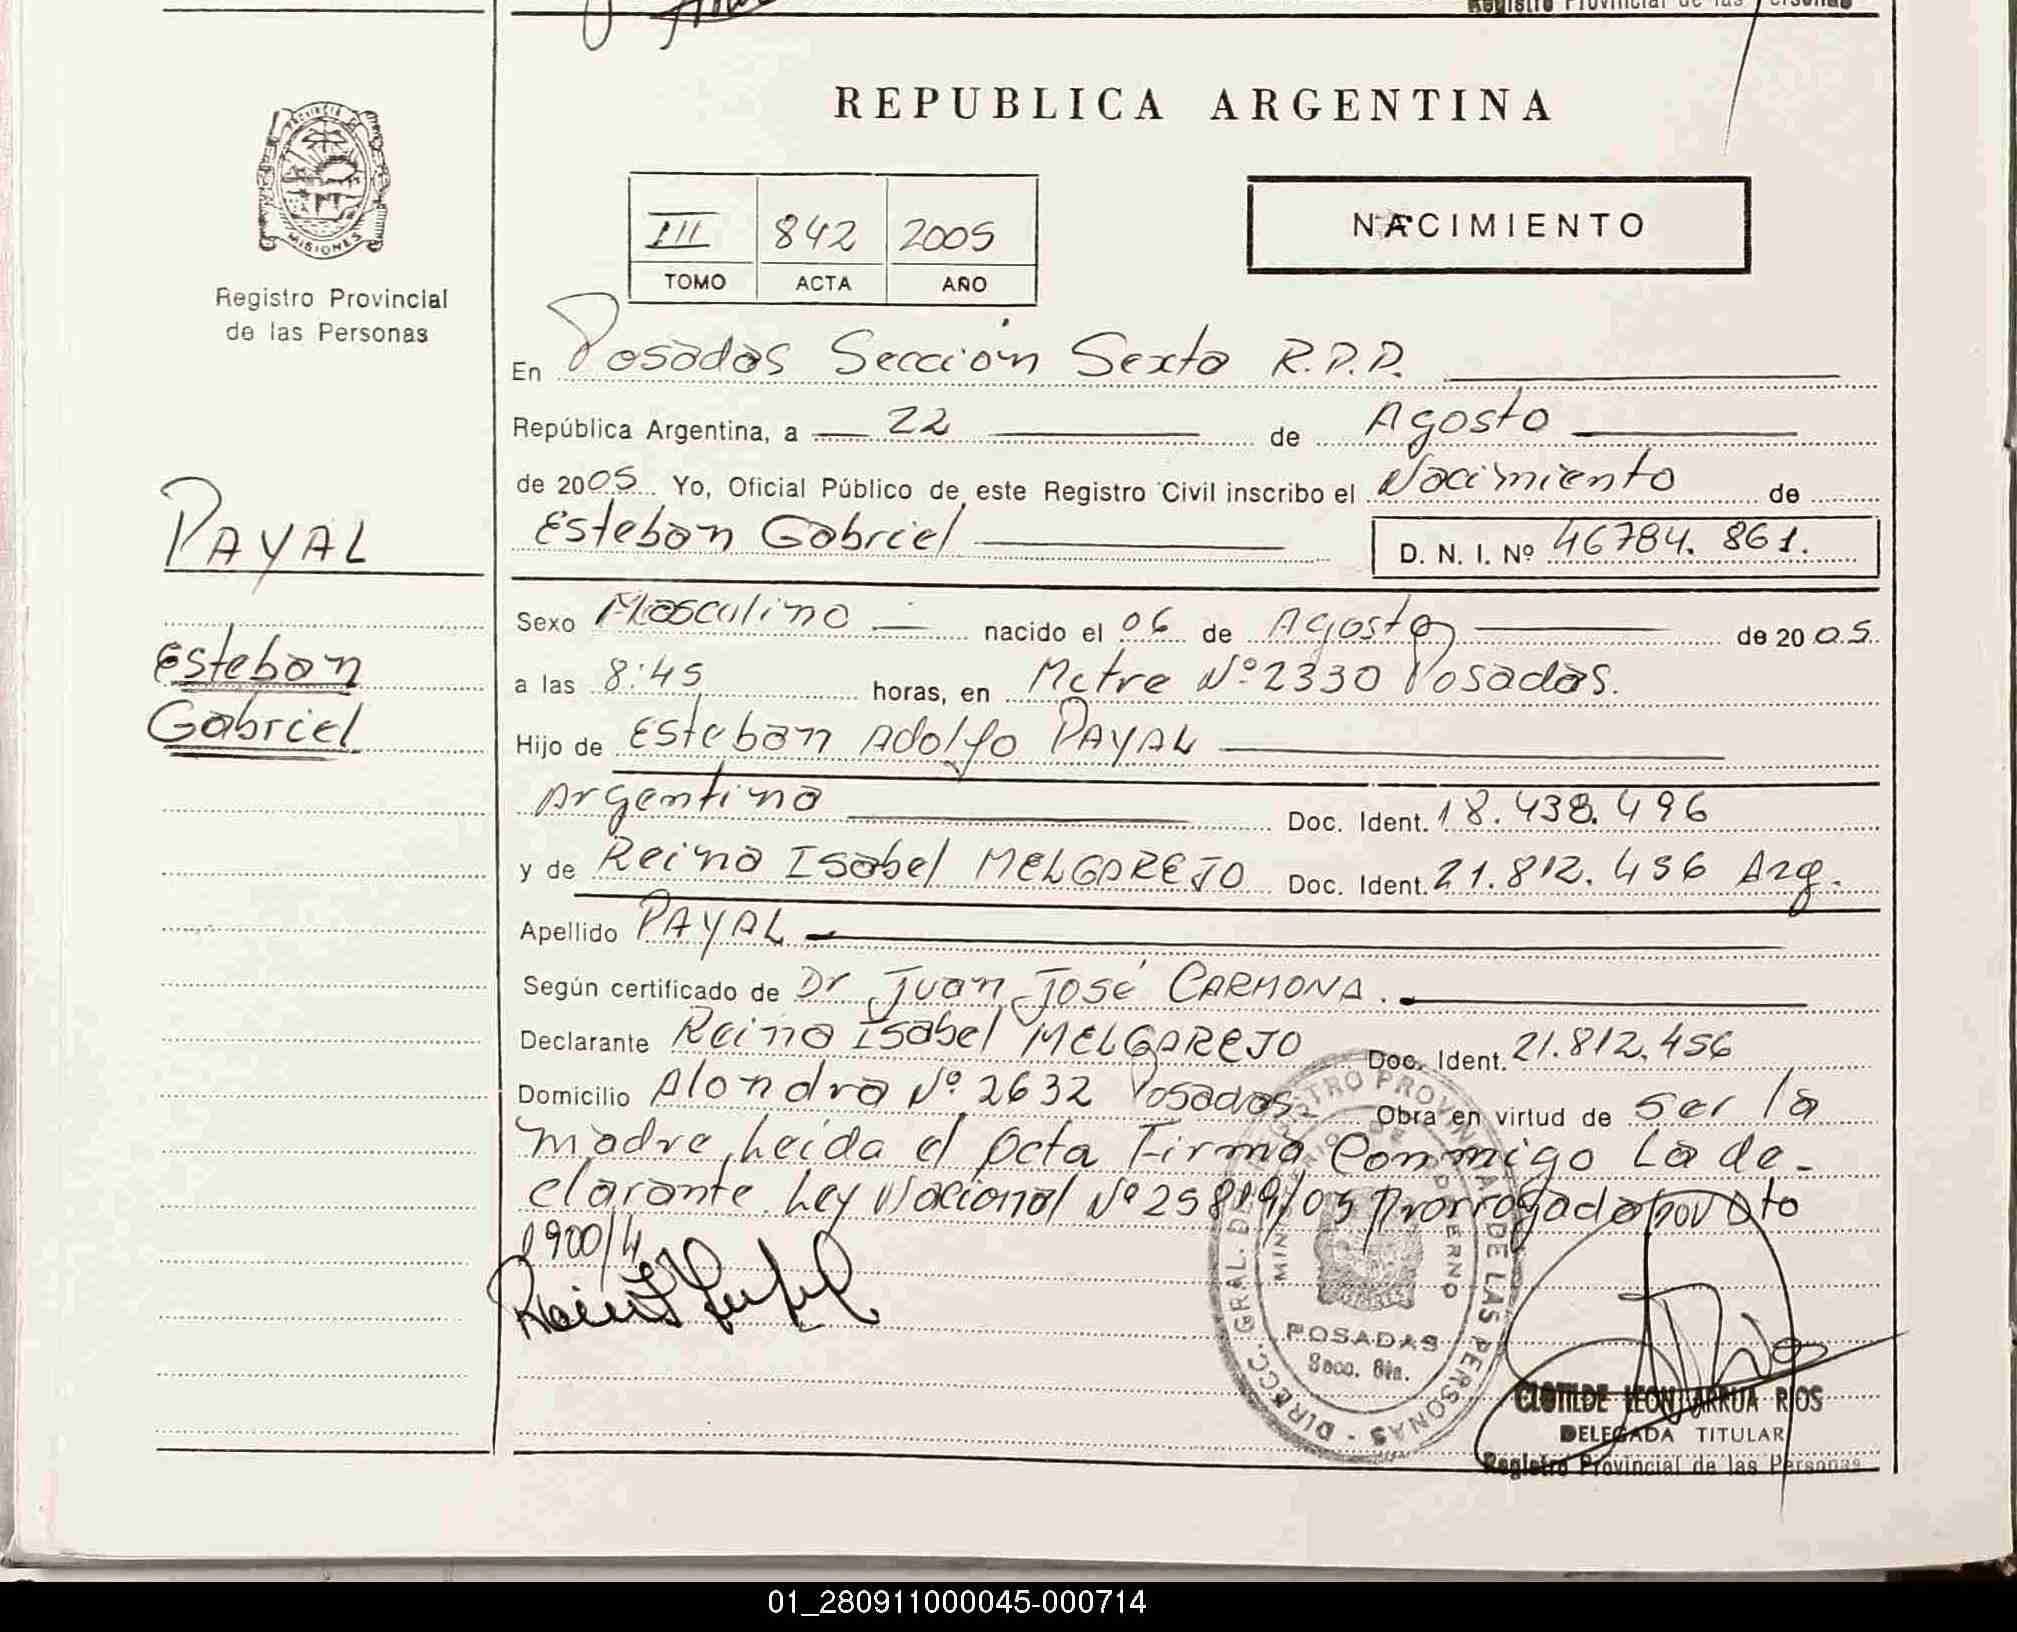 Registro Provincial de las Personas
REPUBLICA ARGENTINA
PROVINCIA DE
MISIONES
Registro Provincial
de las Personas
III 842 2005
TOMO ACTA AÑO
NACIMIENTO
En Posadas Sección Sexta R.P.P.
República Argentina, a 22 de Agosto
de 2005 Yo, Oficial Público de este Registro Civil inscribo el Nacimiento de
Esteban Gabriel D. N. I. Nº 46784.861.
PAYAL
Esteban
Gabriel
Sexo Masculino nacido el 06 de Agosto de 2005.
a las 8:45 horas, en Mitre Nº 2330 Posadas.
Hijo de Esteban Adolfo PAYAL
Argentina Doc. Ident. 18.438.496
y de Reina Isabel MELGAREJO Doc. Ident. 21.812.456 Arg.
Apellido PAYAL
Según certificado de Dr Juan José CARMONA.
Declarante Reina Isabel MELGAREJO Doc. Ident. 21.812.456
Domicilio Alondra Nº 2632 Posadas Obra en virtud de ser la
madre, Leída el Acta Firma Conmigo La de-
clarante. Ley Nacional Nº 25819/03 Prorrogada por Dto
1900/4
DIRECC. GRAL. DE REGISTRO PROVINCIAL DE LAS PERSONAS
MINISTERIO DE GOBIERNO
POSADAS
Secc. 6ta.
CLOTILDE LEONI ARRUA RIOS
DELEGADA TITULAR
Registro Provincial de las Personas
01_280911000045-000714